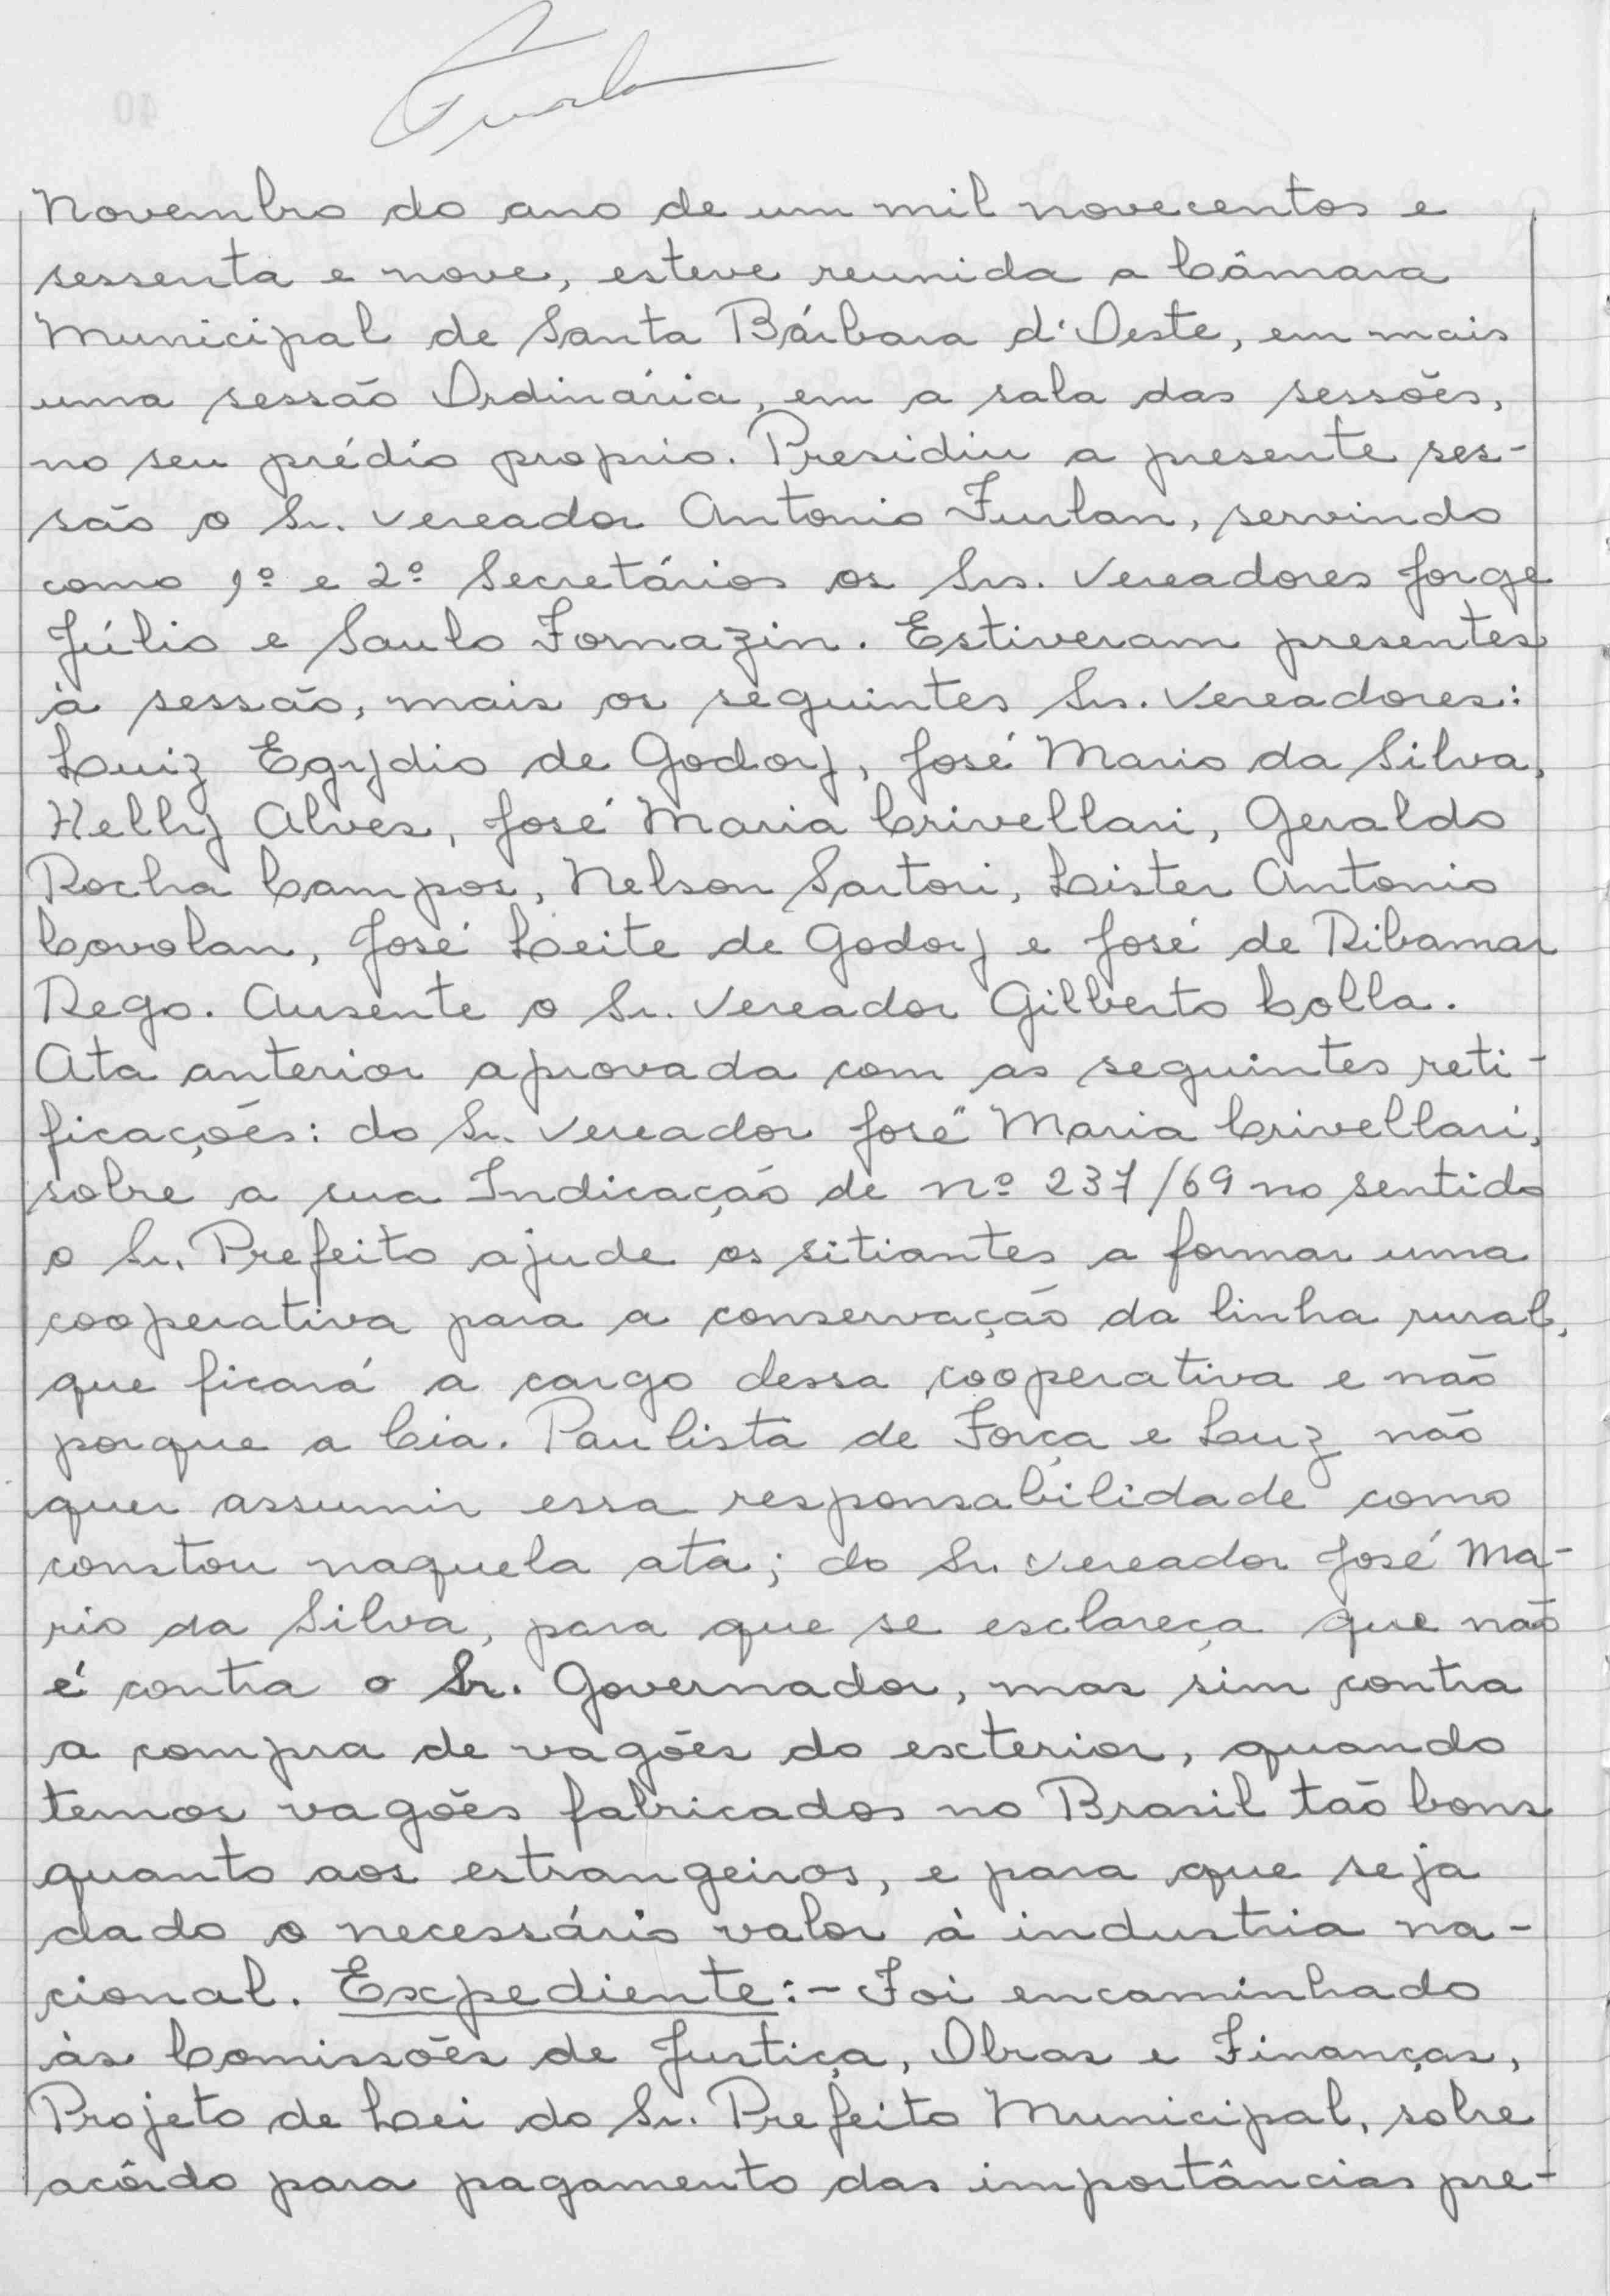 Novembro do ano de um mil novecentos e
sessenta e nove, esteve reunida a Câmara
Municipal de Santa Bárbara d'Oeste, em mais
uma sessão Ordinária, em a sala das sessões,
no seu prédio proprio. Presidiu a presente ses-
são o Sr. Vereador Antonio Furlan, servindo
como 1º e 2º Secretários os Srs. Vereadores Jorge
Júlio e Saulo Fornazin. Estiveram presentes
à sessão, mais os seguintes Srs. Vereadores:
Luiz Egydio de Godoy, José Mario da Silva,
Helly Alves, José Maria Crivellari, Geraldo
Rocha Campos, Nelson Sartori, Lister Antonio
Covolan, José Leite de Godoy e José de Ribamar
Rego. Ausente o Sr. Vereador Gilberto Colla.
Ata anterior aprovada com as seguintes reti-
ficações: do Sr. Vereador José Maria Crivellari,
sobre a sua Indicação de nº 237/69 no sentido
o Sr. Prefeito ajude os sitiantes a formar uma
cooperativa para a conservação da linha rural,
que ficará a cargo dessa cooperativa e não
porque a Cia. Paulista de Força e Luz não
quer assumir essa responsabilidade como
constou naquela ata; do Sr. Vereador José Ma-
rio da Silva, para que se esclareça que não
é contra o Sr. Governador, mas sim contra
a compra de vagões do exterior, quando
temos vagões fabricados no Brasil tão bons
quanto aos estrangeiros, e para que seja
dado o necessário valor à industria na-
cional. Expediente:- Foi encaminhado
às Comissões de Justiça, Obras e Finanças,
Projeto de Lei do Sr. Prefeito Municipal, sobre
acôrdo para pagamento das importâncias pre-